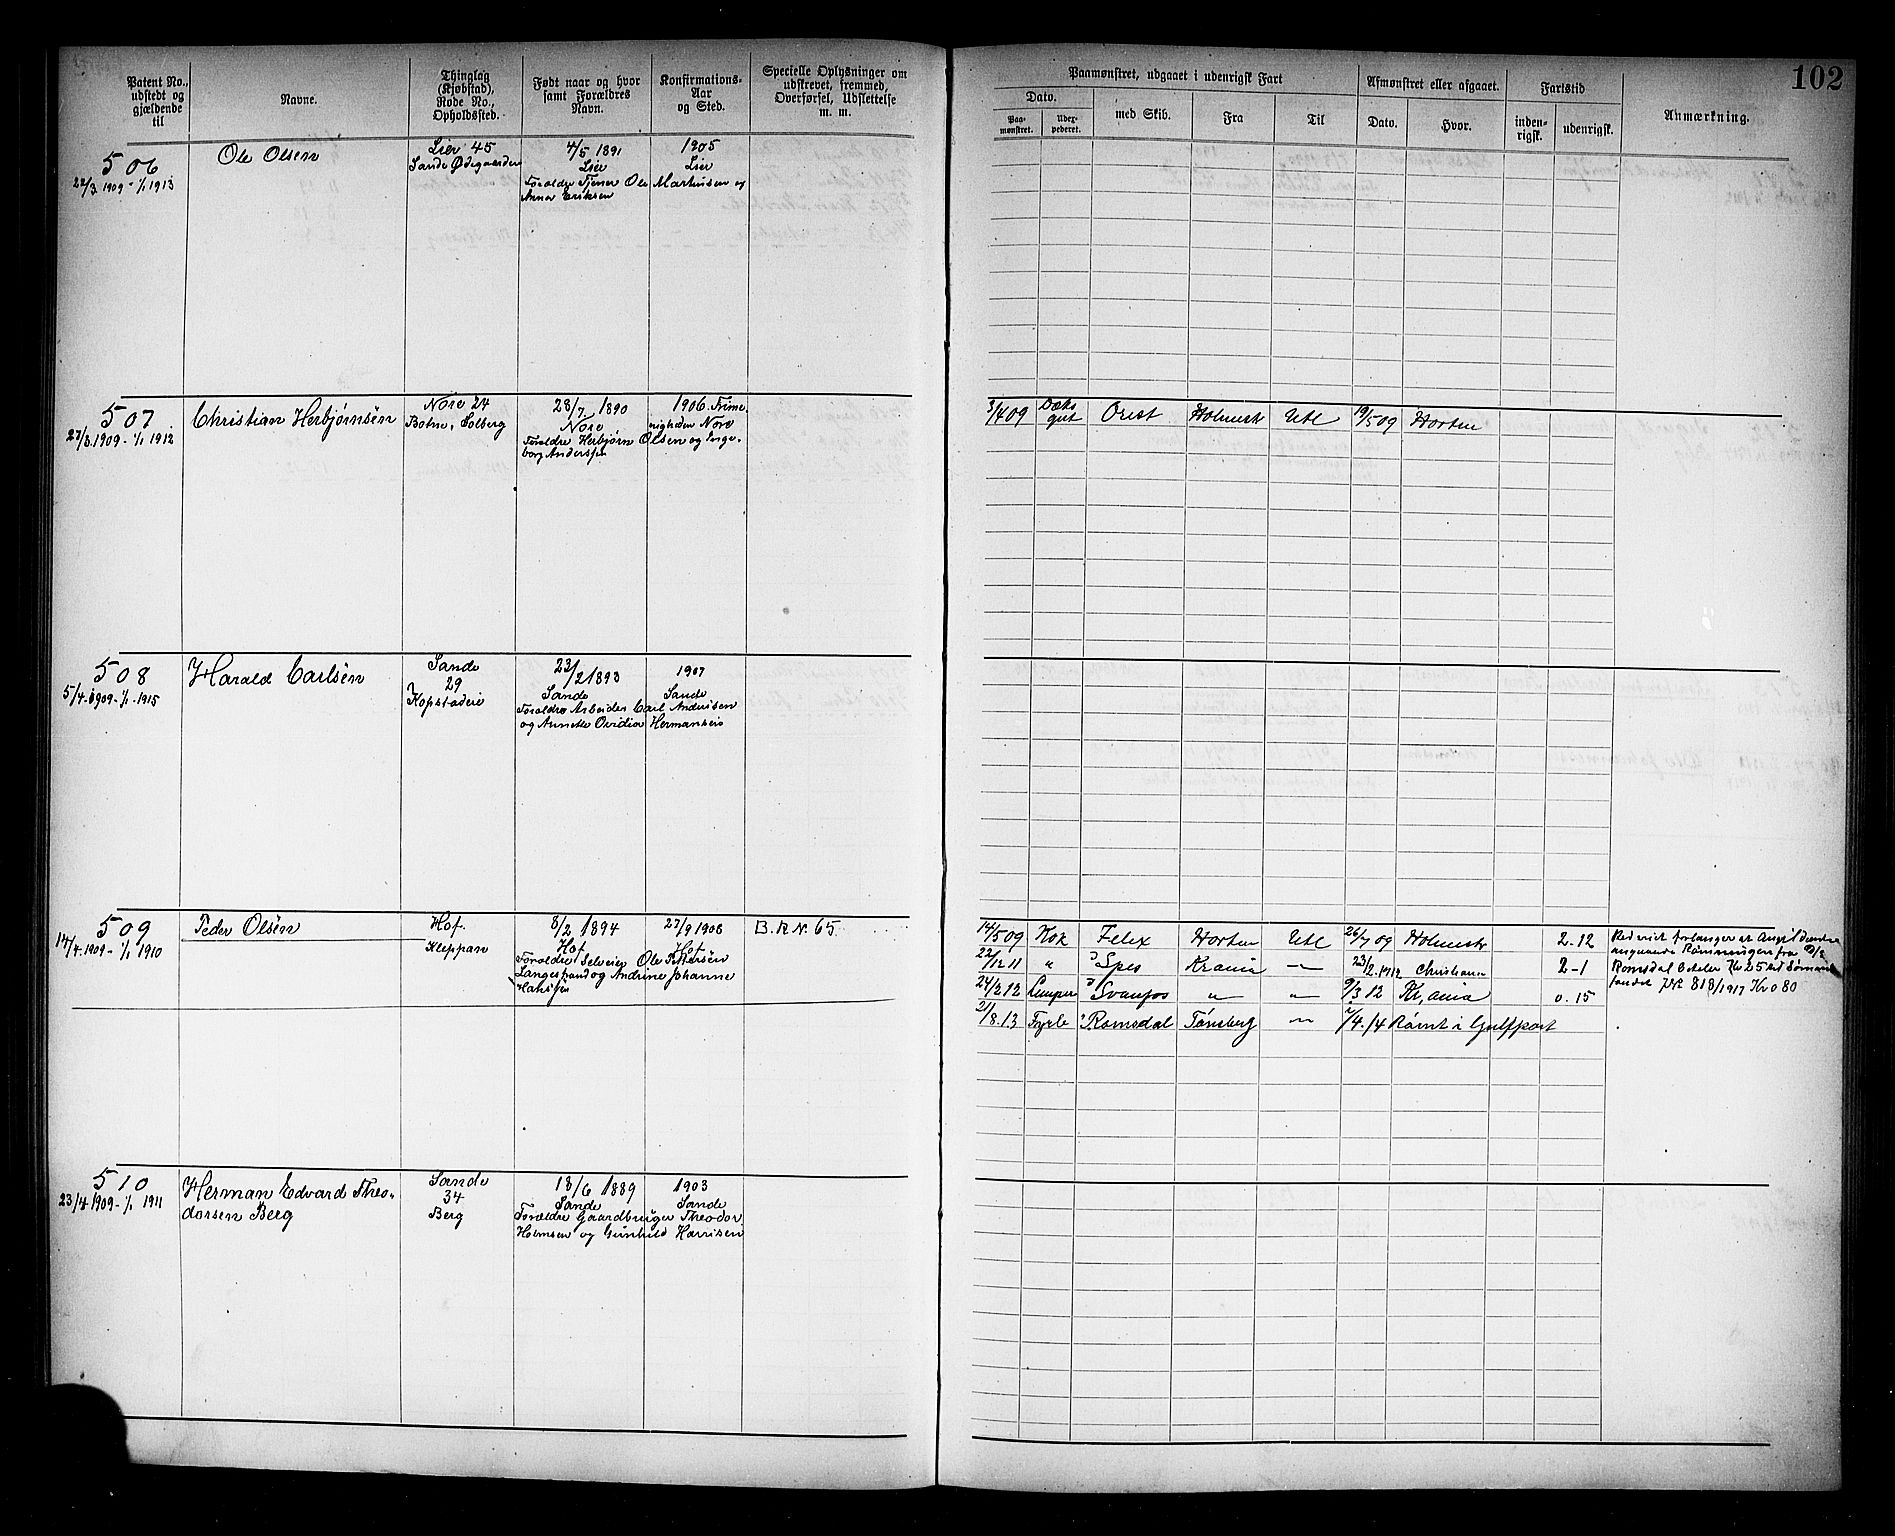 102
Patent No., udstedt og gjældende til
Navne.
Thinglag (Kjøbstad), Rode No., Opholdssted.
Født naar og hvor samt Forældres Navn.
Konfirmations-Aar og Sted.
Specielle Oplysninger om udskrevet, fremmed, Overførsel, Udslettelse m. m.
Paamønstret, udgaaet i udenrigsk Fart
Afmønstret eller afgaaet.
Fartstid
Anmærkning.
Dato.
Paa-mønstret.
med Skib.
Fra
Til
Dato.
Hvor.
inden-rigsk.
udenrigsk.
506
22/3 1909 - 1/1 1913
Ole Olsen
Lier 45
Sande Ødegaarden
4/5 1891
Lier
1905
Lier
Forældre Tjener Ole Martinsen og
Anna Eriksen
507
27/3. 1909 - 1/1 1912
Christian Herbjørnsen
Nore 24
Botne, Solberg
23/7. 1890
Nore
1906. Frime
nigheden Nore
Forældre Herbjørn Olsen og Inge-
borg Andersen
3/4 09 Dæks gut Orest Holmestr Utl 19/5 09 Horten
508
5/4. 1909 - 1/1 - 1915
Harald Carlsen
Sande
29
Kopstadeie
23/2 1893
Sande
1907
Sande
Forældre Arbeider Carl Andersen
og Annette Ovidia Hermansen
509
14/4. 1909 - 1/1 1910
Peder Olsen
Hof.
Kleppan
8/2 1894
Hof
27/9 1908
Hof
B. R. Nr. 65
Forældre Selveier Ole Pettersen
Langesand og Andrine Johanne
Hansen
14/5 09 Kok Felix Horten Utl 26/7 09 Holmestr 2-12
22/12 11 " Spes Krania — 23/2. 1912 Christiania 2-1
24/2 12 Lemper Svanfos " — 9/3 12 Kr,ania 0. 15
2/8. 13 Fyrb Romsdal Tønsberg — 7/4. 14 Rømt i Gulfport
angaaende Rømningen fra D/S
Romsdal Kr 25
fondet 818/1917 Kr 0 80
510
23/4 1909 - 1/1 1911
Herman Edvard Theo-
dorsen Berg
Sande
34
Berg
13/6 1889
Sande
1903
Sande
Forældre Gaardbruger Theodor
og Gunhild